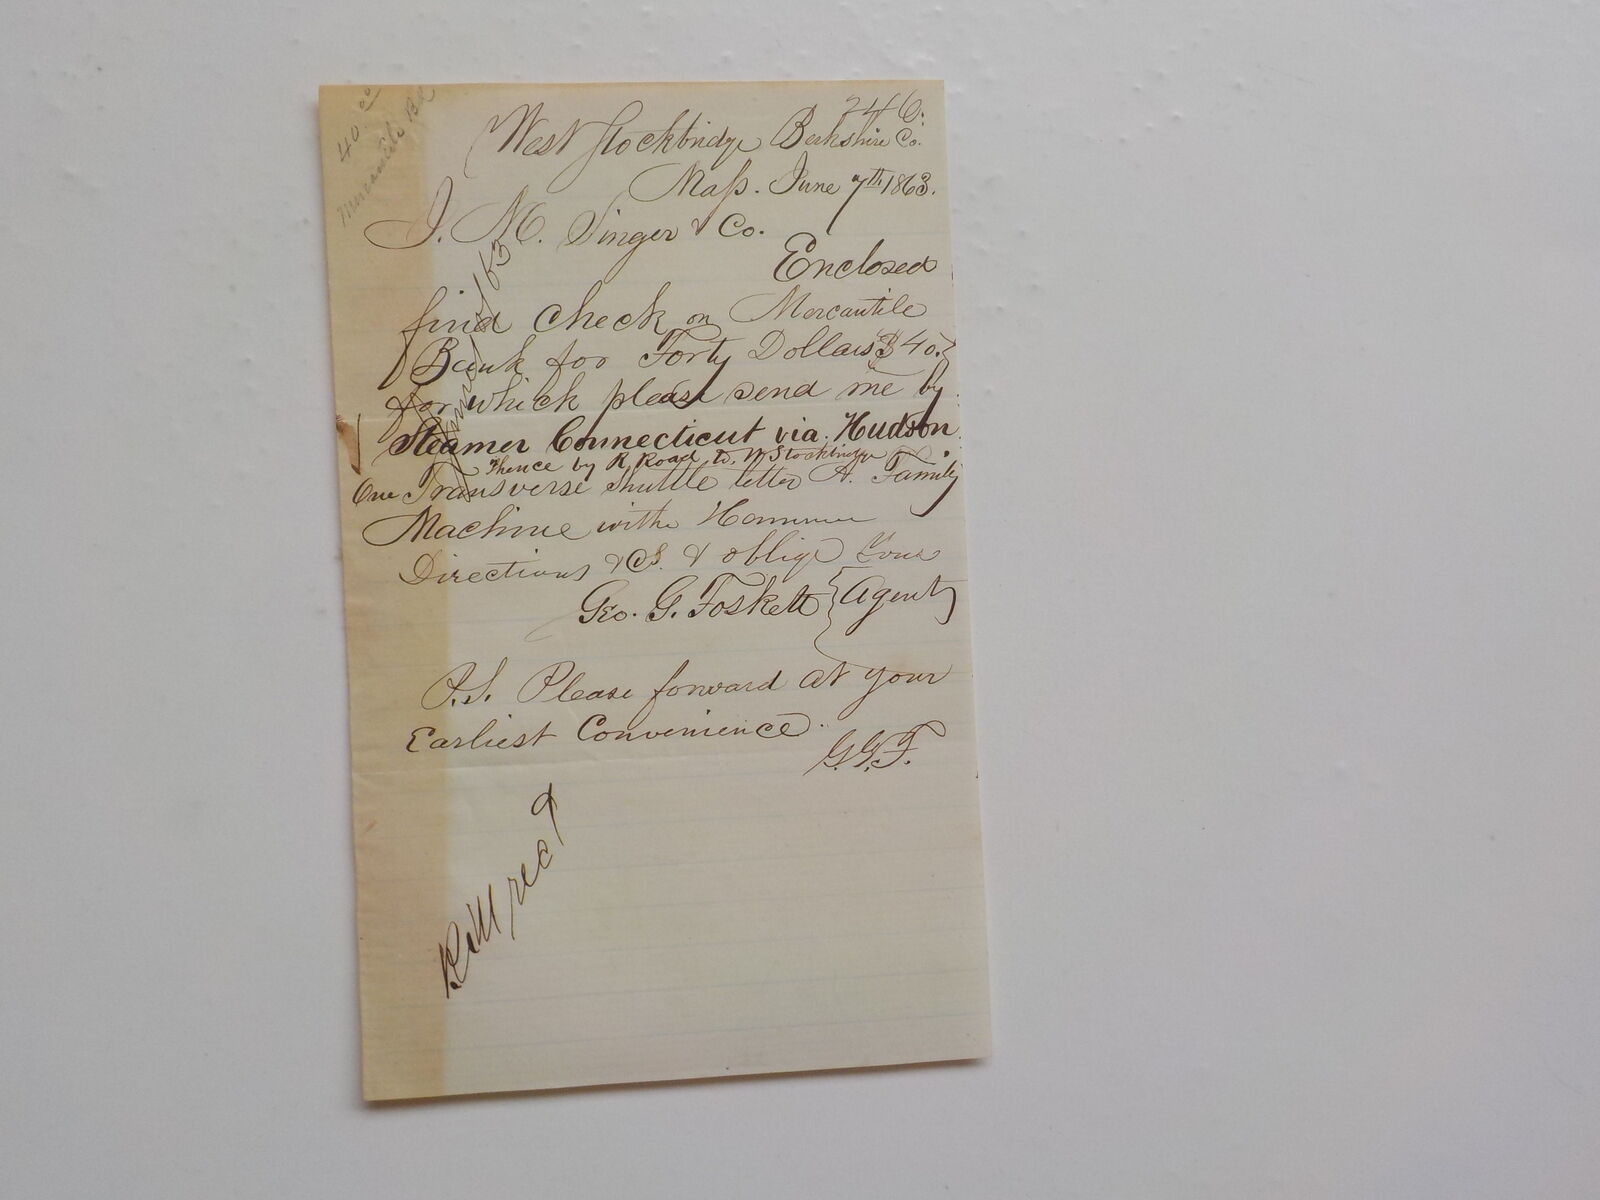 40.00
Mercantile Bk
246.
West Stockbridge Berkshire Co.
Mass. June 7th 1863.
I. M. Singer & Co.
Enclosed
find check on Mercantile
Bank for Forty Dollars $40.
for which please send me by
Steamer Connecticut via. Hudson
Thence by R. Road to. W Stockbridge
One Transverse Shuttle letter A. Family
Machine with Hemmer
Directions &c. & oblige Yours
Geo. G. Foskett Agent
P.S. Please forward at your
Earliest Convenience.
G.G.F.
Bill rec